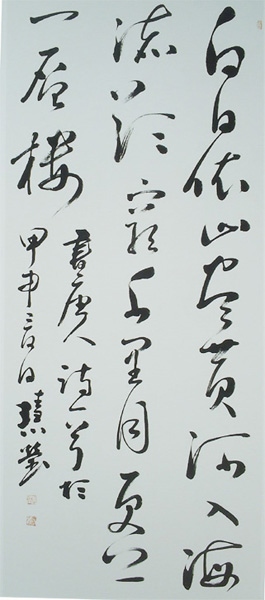 白日依山尽黄河入海
流欲穷千里目更上
一层楼
書唐人詩一首於
甲申